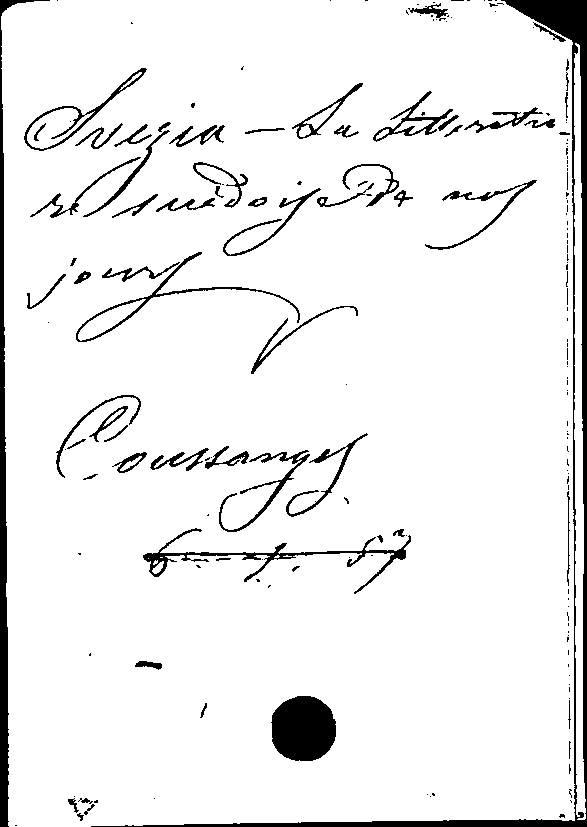 Svezia – La Littératu-
re suédoise De nos
jours
V
Coussanges
6 57